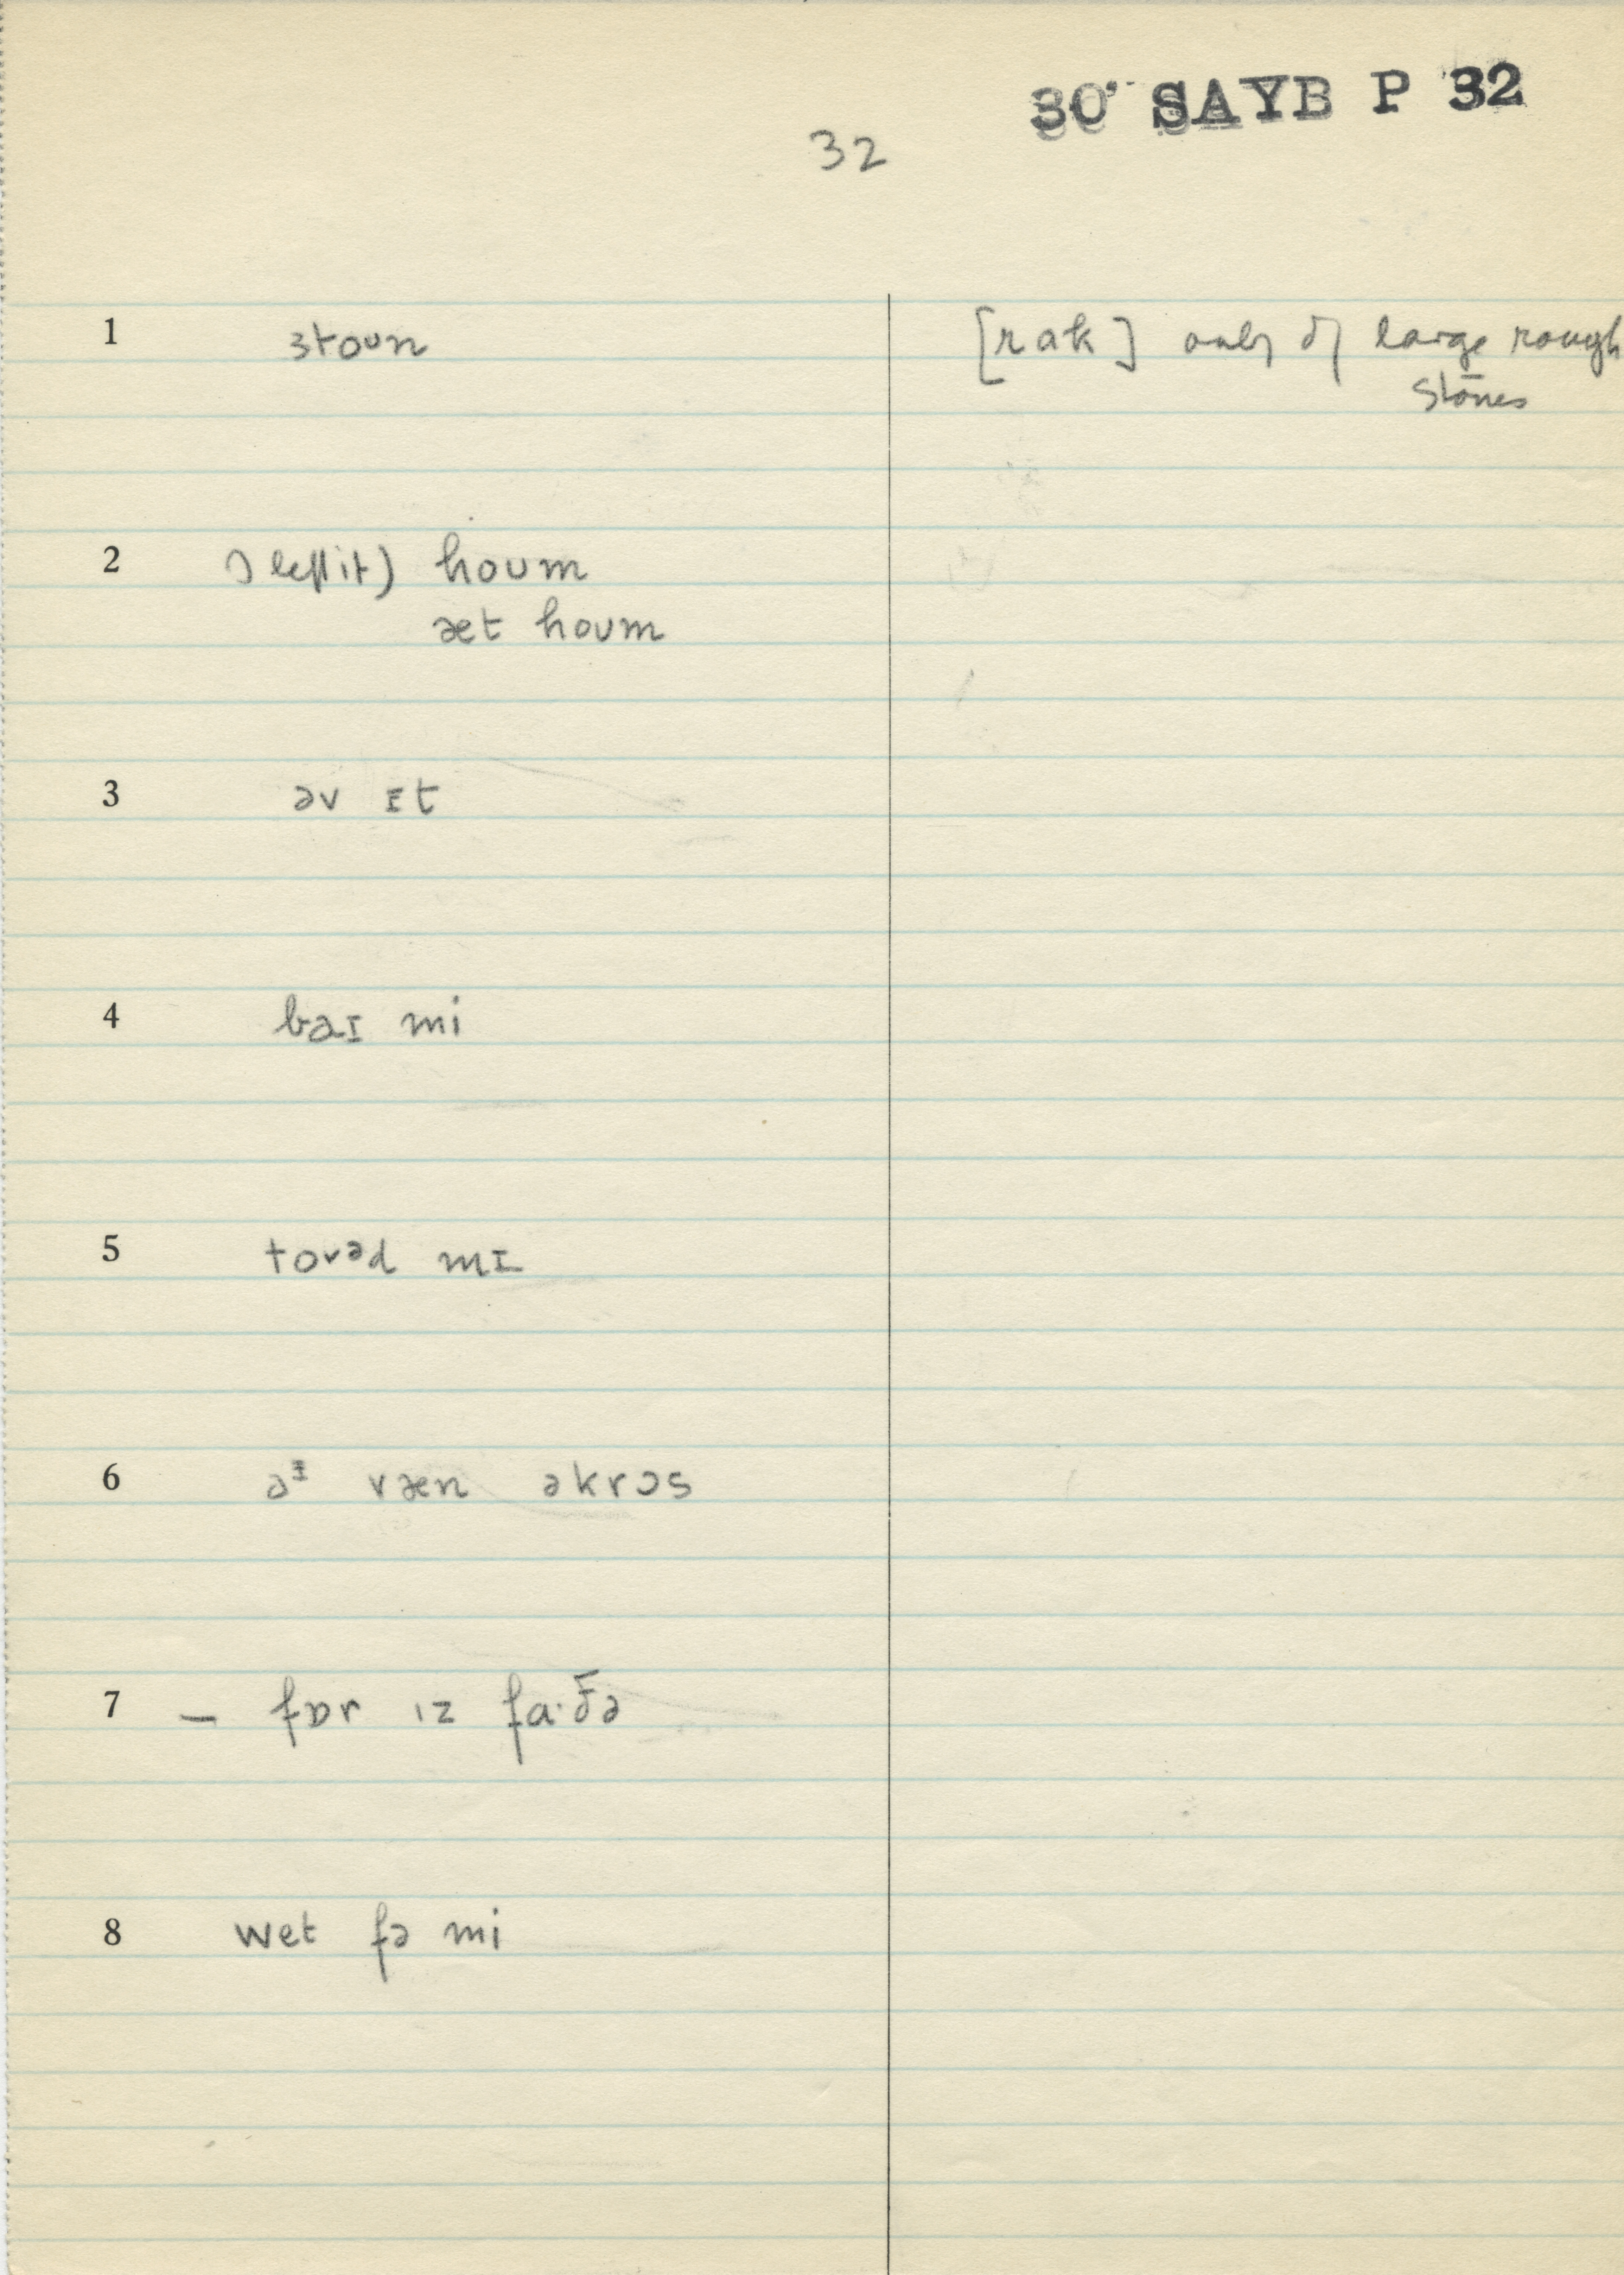 30 SAYB P 32
32
1 stoun [rak] only of large rough
stones
2 I left it) houm
æt houm
3 əv ɪt
4 baɪ mi
5 tovəd mɪ
6 aᶦ ræn əkrɔs
7 – fɒr ɪz fa·ðə
8 wet fə mi